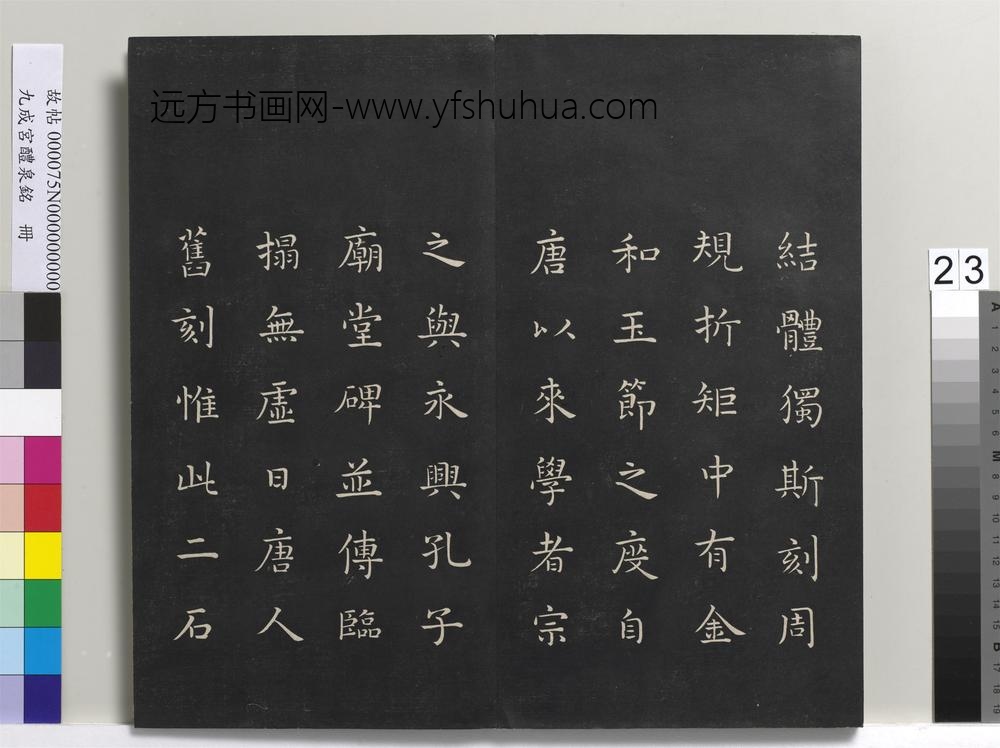 远方书画网-www.yfshuhua.com
結體獨斯刻周
規折矩中有金
和玉節之度自
唐以來學者宗
之與永興孔子
廟堂碑並傳臨
搨無虛日唐人
舊刻惟此二石
故帖 000075N000000000
九成宮醴泉銘 冊
23
A 1 2 3 4 5 6 M 8 9 10 11 12 13 14 15 B 17 18 19